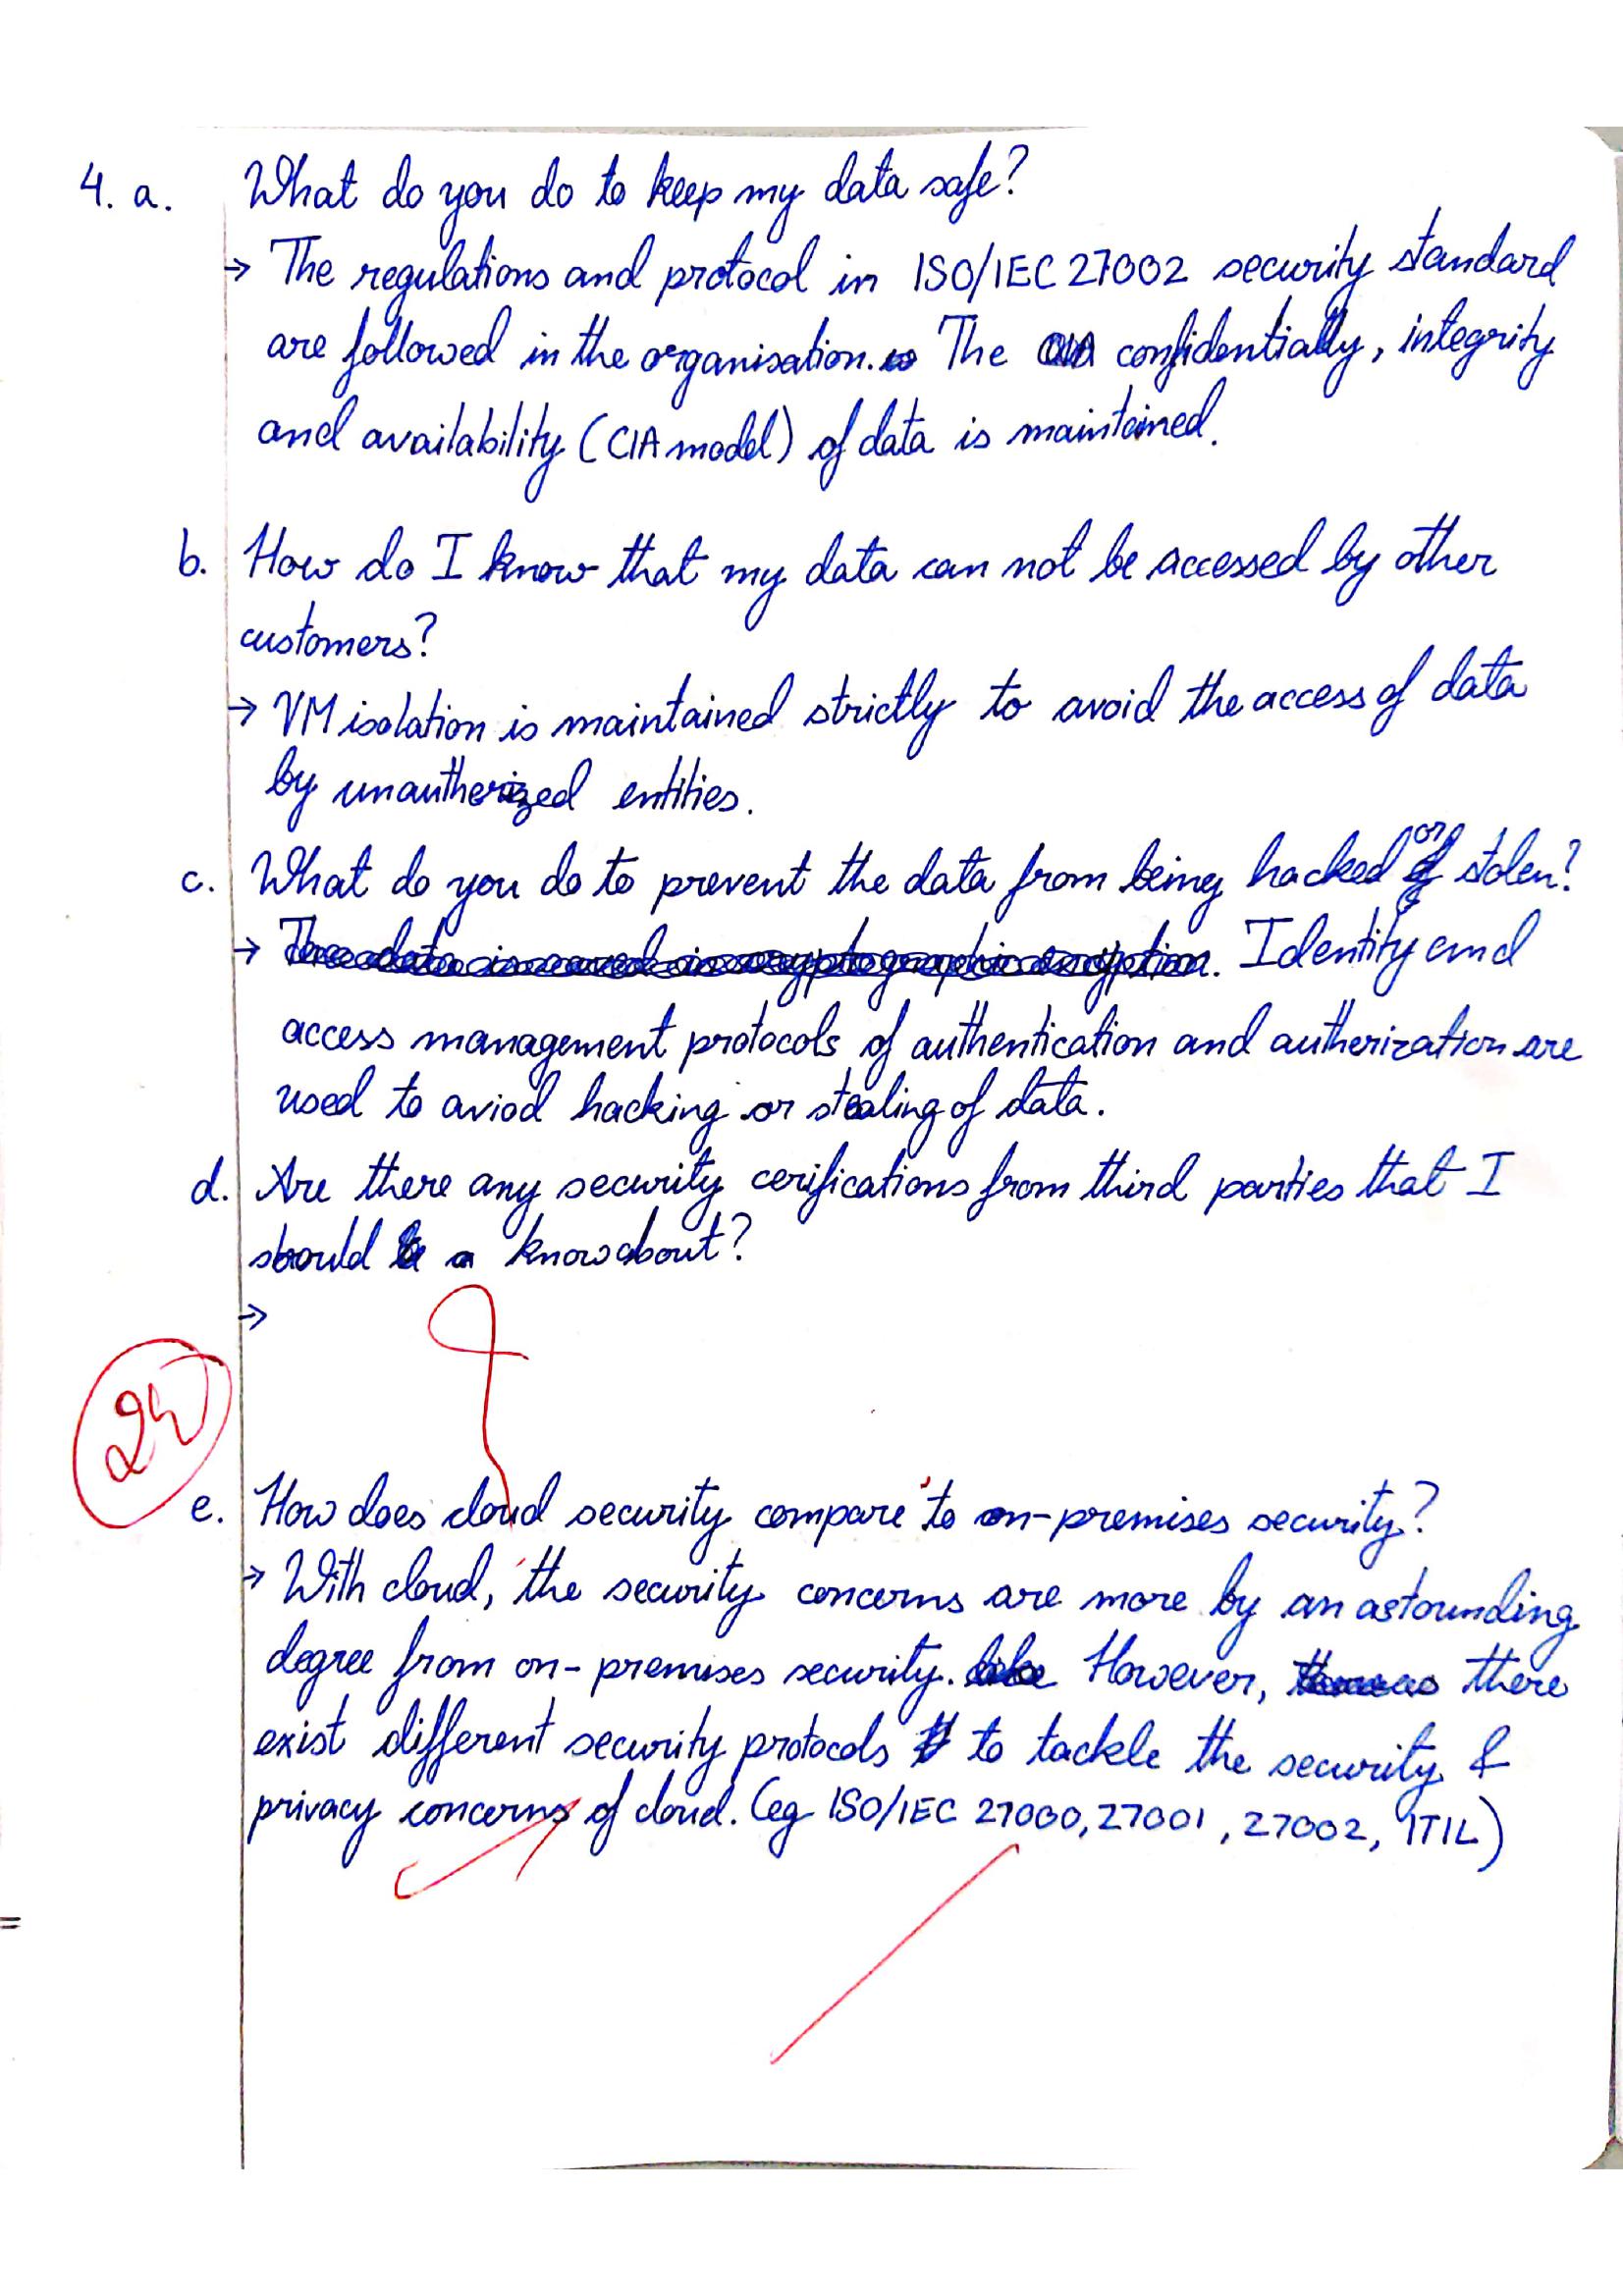 4. a. What do you do to keep my data safe?
→ The regulations and protocol in ISO/IEC 27002 security standard
are followed in the organisation. The confidentially, integrity
and availability (CIA model) of data is maintained.
b. How do I know that my data can not be accessed by other
customers?
→ VM isolation is maintained strictly to avoid the access of data
by unautherized entities.
c. What do you do to prevent the data from being hacked or stolen?
→ The data is saved in cryptographic encyption. Identity and
access management protocols of authentication and autherization are
used to aviod hacking or stealing of data.
d. Are there any security cerifications from third parties that I
should know about?
→
e. How does cloud security compare to on-premises security?
→ With cloud, the security concerns are more by an astounding
degree from on-premises security. However, there
exist different security protocols to tackle the security &
privacy concerns of cloud. (eg ISO/IEC 27000, 27001, 27002, ITIL)